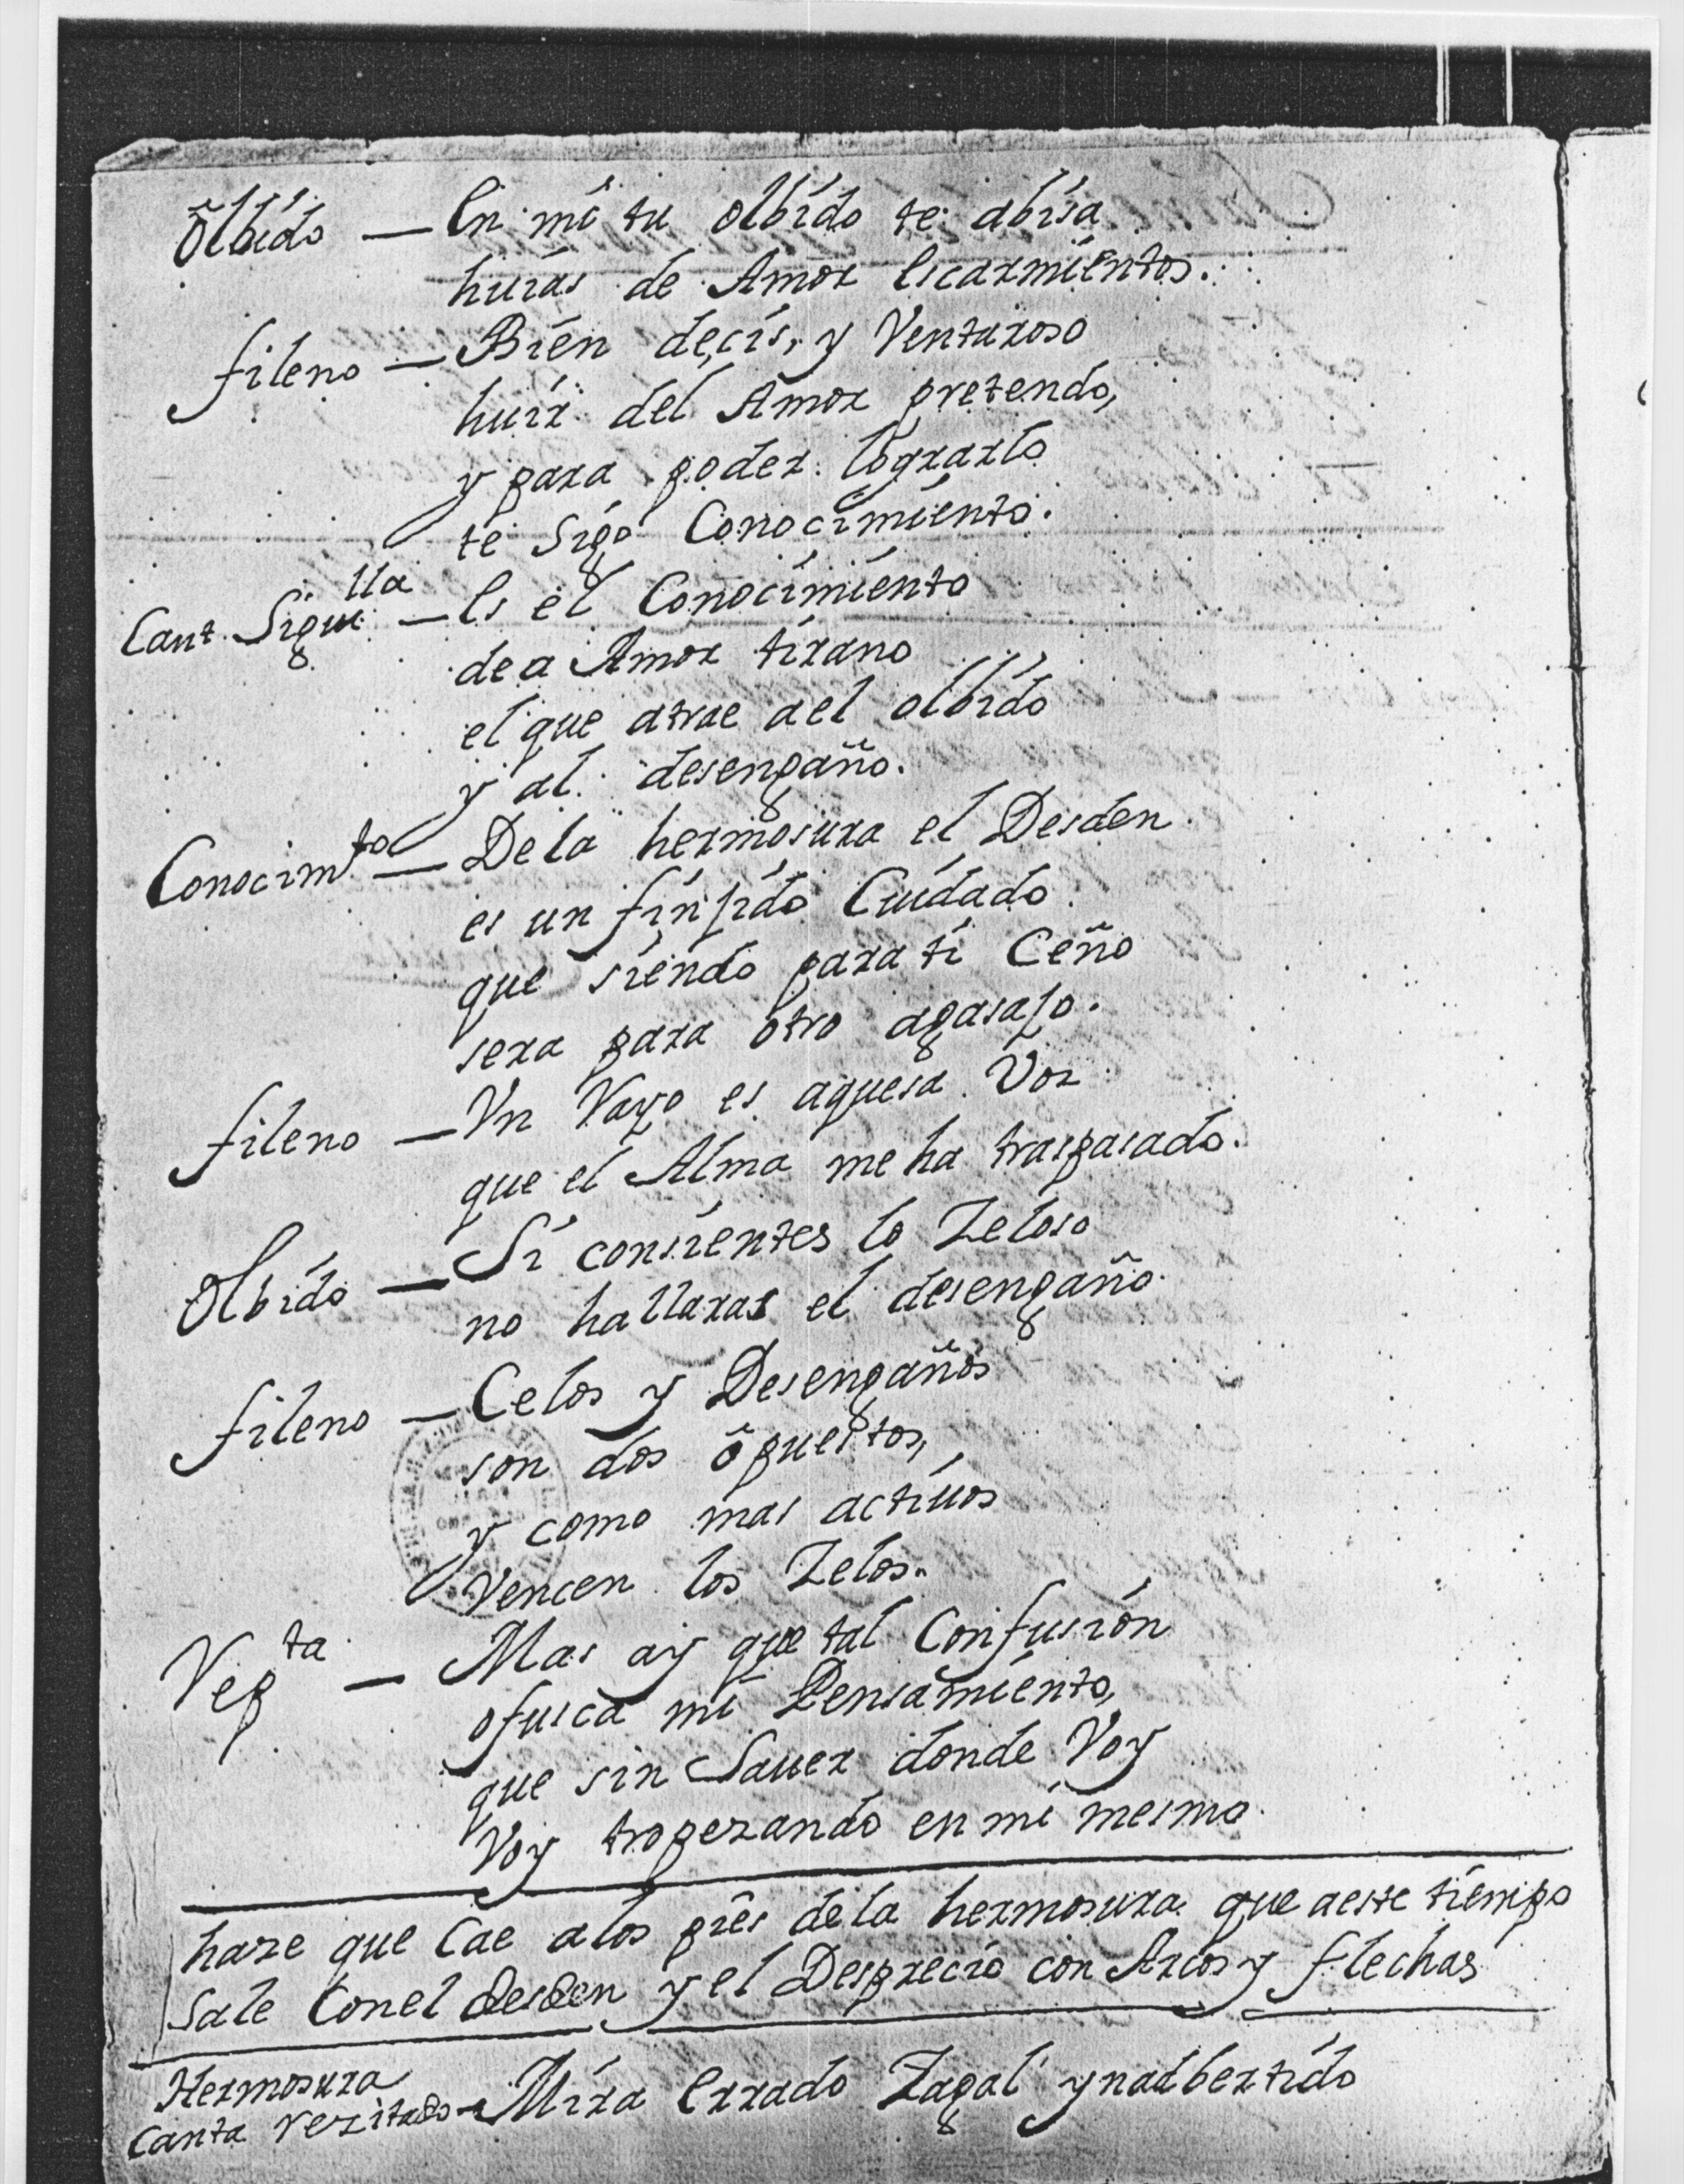 Olbido — En mi tu olbido te abisa
huias de Amor escarmientos.
fileno — Bien decis, y Venturoso
huir del Amor pretendo,
y para poder lograrlo
te sigo Conocimiento.
Cant. Sigui.lla — Es el Conocimiento
de a Amor tirano
el que atrae a el olbido
y al desengaño.
Conocim.to — De la hermosura el Desden
es un finjido Cuidado
que siendo para ti Ceño
sera para otro agasajo.
fileno — Vn Rayo es aquesa Voz
que el Alma me ha traspasado.
Olbido — Si consientes lo Zeloso
no hallaras el desengaño.
fileno — Celos y Desengaños
son dos opuestos,
y como mas actiuos
Vencen los Zelos.
Rep.ta — Mas ay que tal Confusion
ofusca mi Pensamiento,
que sin Sauer donde Voy
Voy tropezando en mi mesmo
haze que Cae a los pies de la hermosura que a este tiempo
Sale Con el desden y el Desprecio con Arcos y flechas
Hermosura
Canta rezitado — Mira Errado Zagal ynadbertido